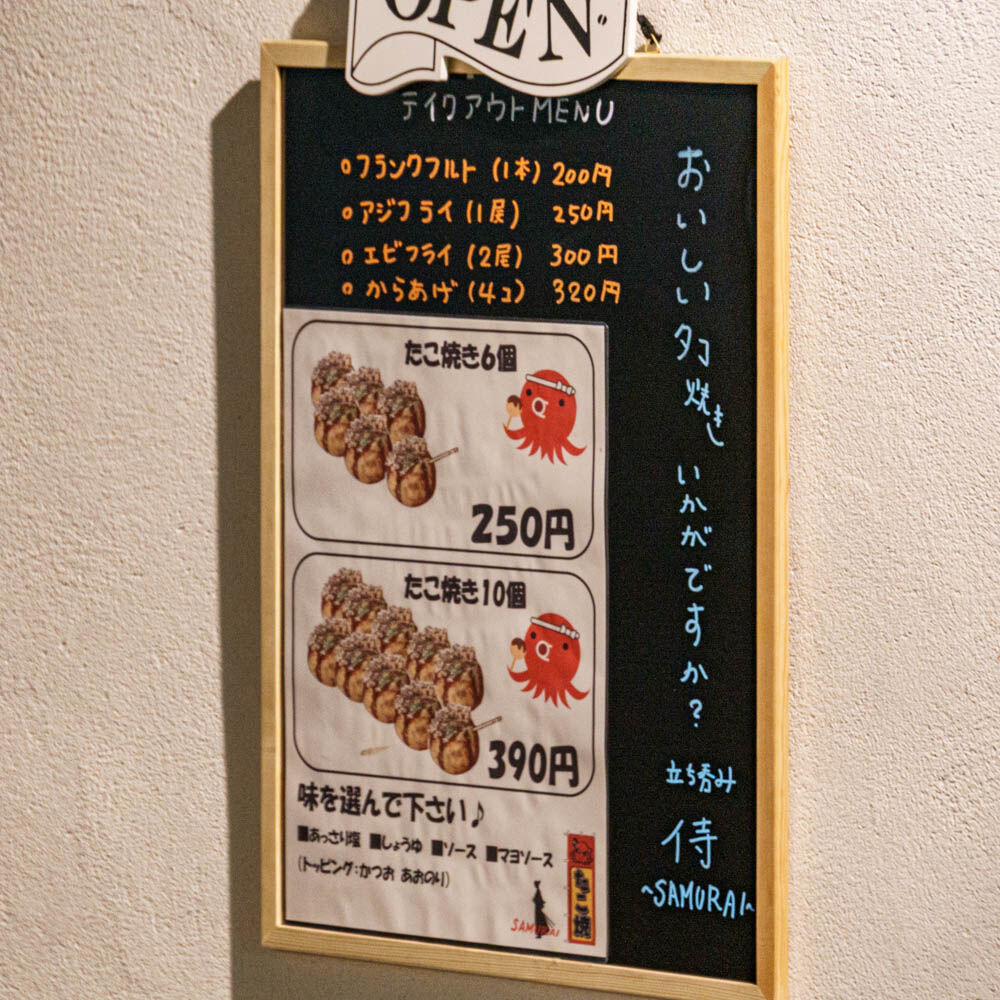 OPEN
テイクアウトMENU
フランクフルト(1本) 200円
アジフライ(1尾) 250円
エビフライ(2尾) 300円
からあげ(4コ) 320円
たこ焼き6個
250円
たこ焼き10個
390円
味を選んで下さい♪
■あっさり塩 ■しょうゆ ■ソース ■マヨソース
(トッピング:かつお あおのり)
SAMURAI
たこ焼
おいしいタコ焼きいかがですか?
立ち呑み
侍
~SAMURAI~